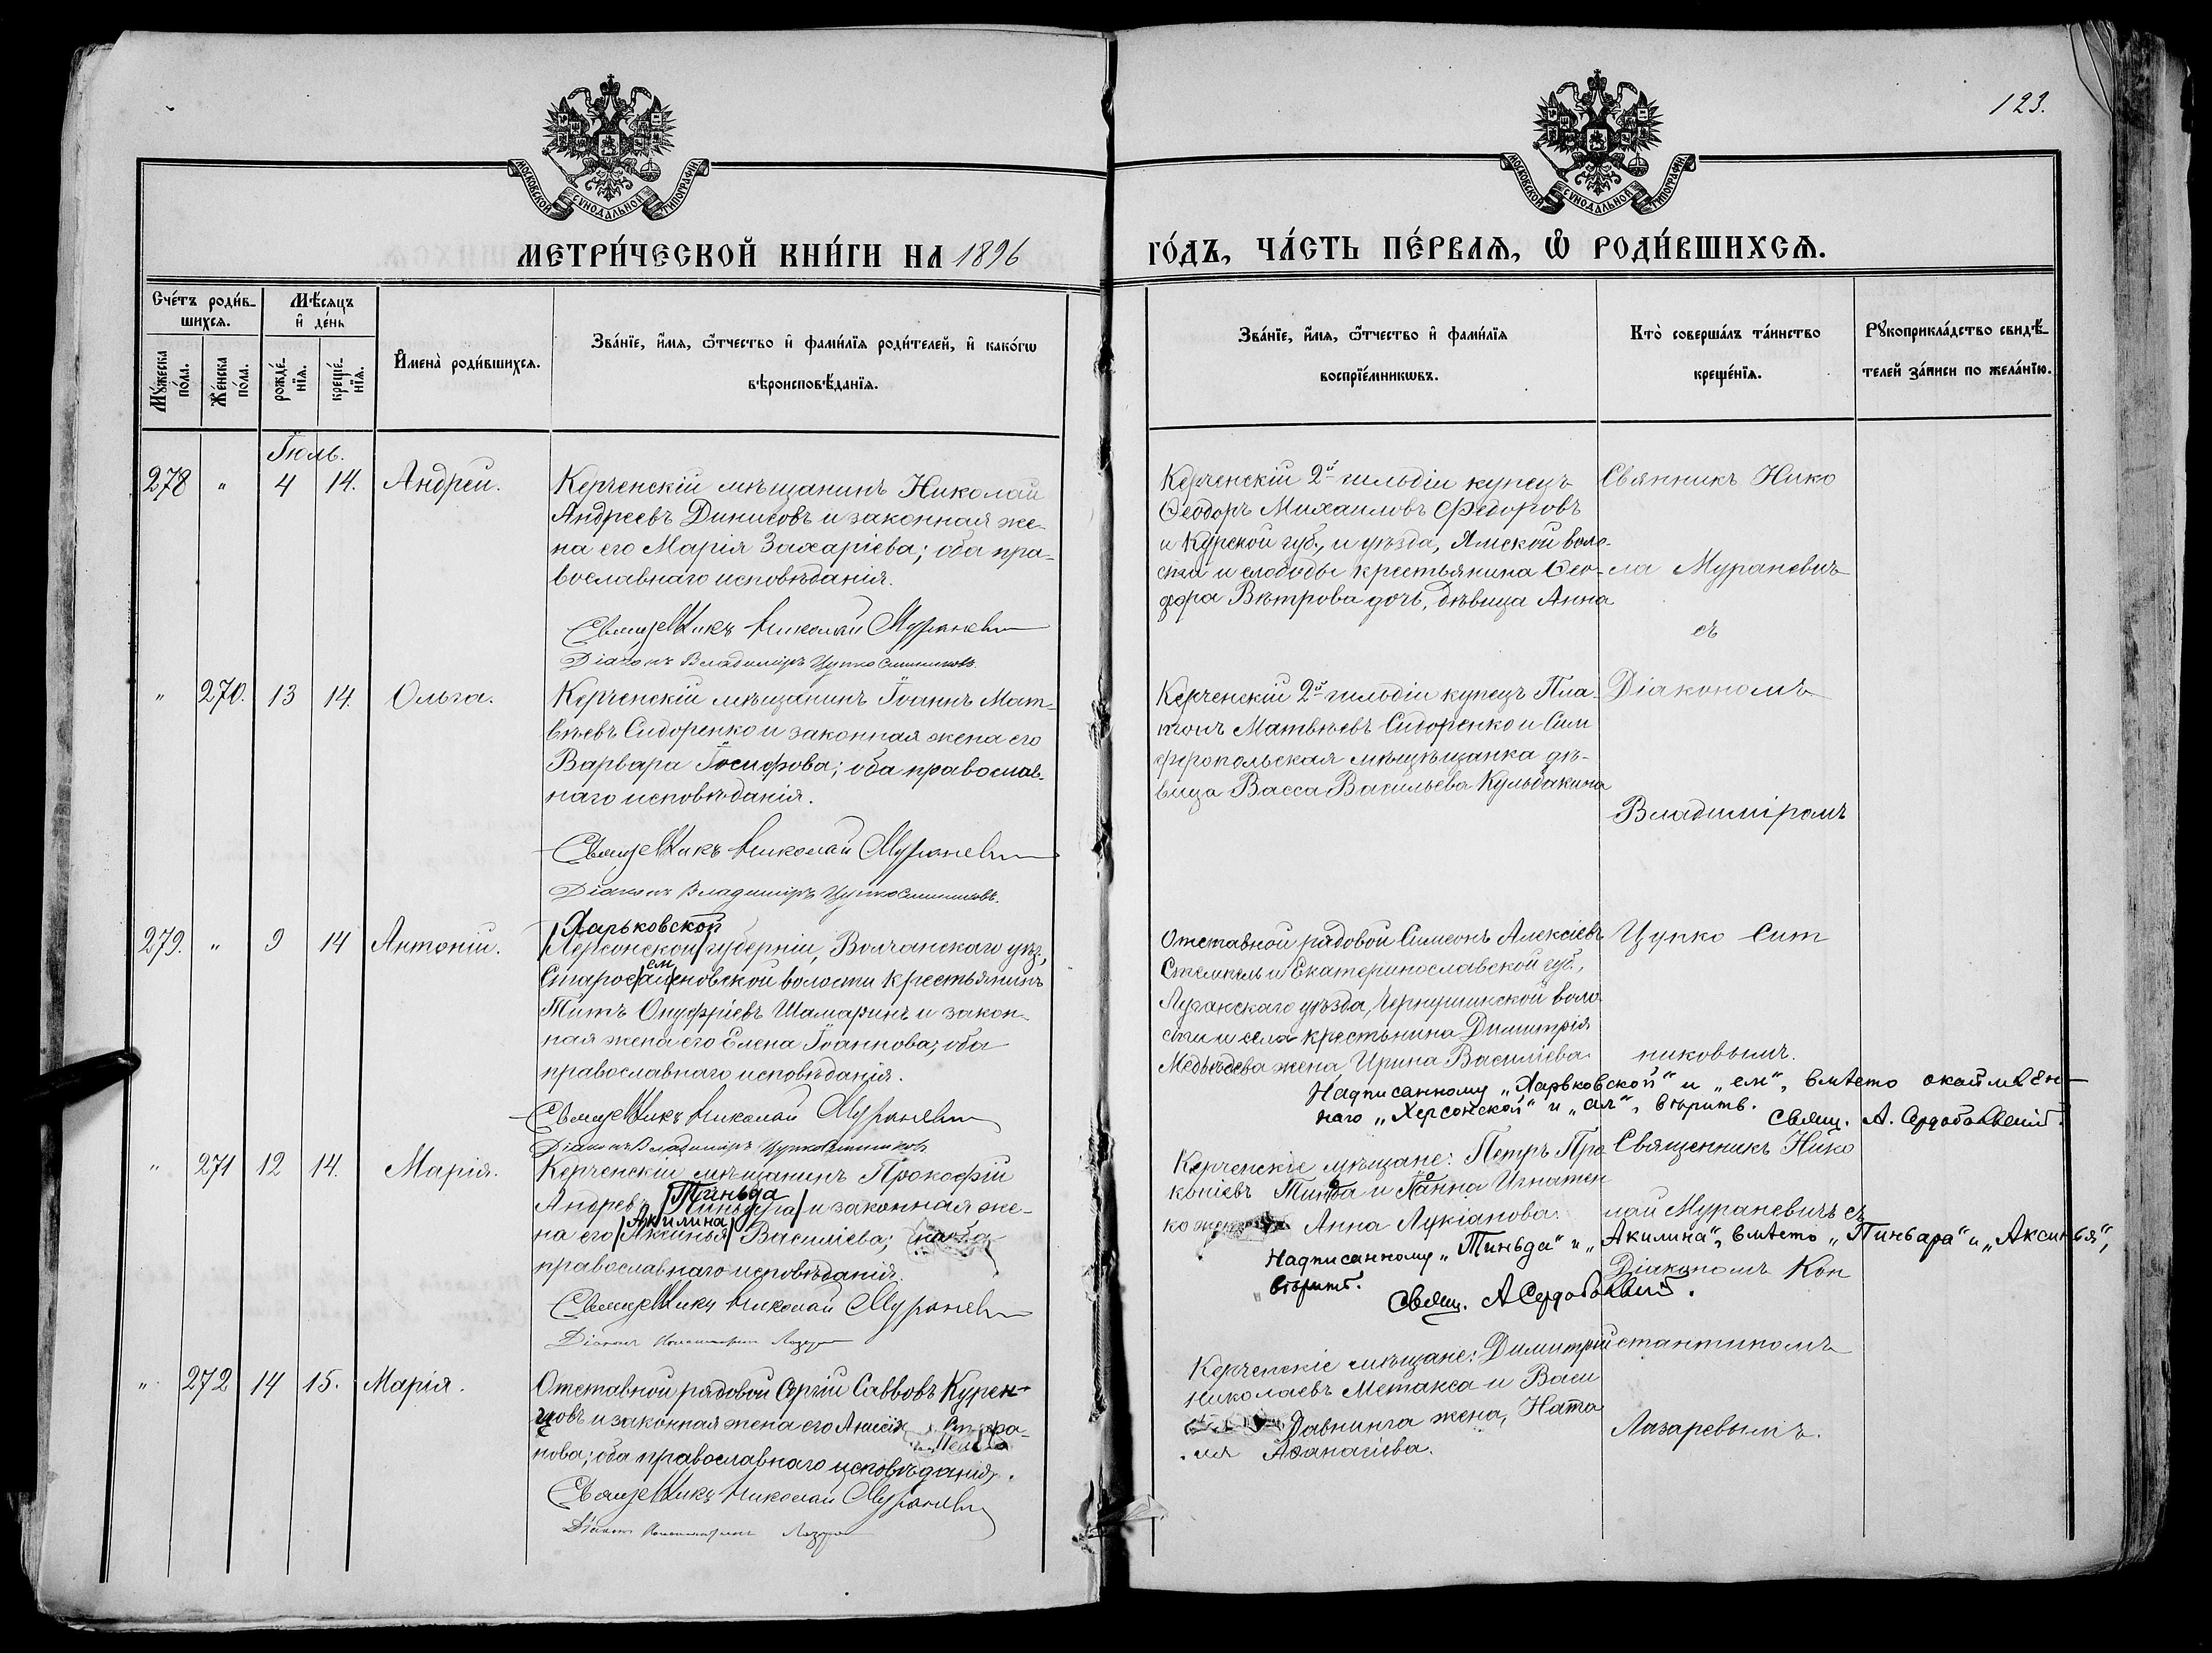 123.
МОСКОВСКОЙ СУНОДАЛЬНОЙ ТИПОГРАФІИ
МОСКОВСКОЙ СУНОДАЛЬНОЙ ТИПОГРАФІИ
МЕТРИ́ЧЕСКОЙ КНИ́ГИ НА 1896
ГО́ДЪ, ЧА́СТЬ ПЕ́РВАѦ, Ѽ РОДИ́ВШИХСѦ.
Сче́тъ роди́в-
шихсѧ.
Мꙋ́жеска
по́ла.
Же́нска
по́ла.
Мѣ́сяцъ
и҆ де́нь
рожде́-
нїѧ.
креще́-
нїѧ.
И҆мена̀ роди́вшихсѧ.
Зва́нїе, и҆́мѧ, ѻ҆́тчество и҆ фами́лїѧ роди́телей, и҆ како́гѡ
вѣроисповѣ́данїѧ.
Зва́нїе, и҆́мѧ, ѻ҆́тчество и҆ фами́лїѧ
воспрїе́мникѡвъ.
Кто̀ соверша́лъ та́инство
креще́нїѧ.
Рꙋкоприкла́дство свидѣ́-
телей за́писи по жела́нїю.
Іюль.
278 " 4 14. Андрей.
Керченскій мѣщанинъ Николай
Андреевъ Динисовъ и законная же-
на его Марія Захаріева; оба пра-
вославнаго исповѣданія.
Священникъ Николай Мураневичъ
Діаконъ Владиміръ Цупко Ситниковъ.
Керченскій 2й гильдіи купецъ
Ѳеодоръ Михаиловъ Федоровъ
и Курской губ., и уѣзда, Ямской воло-
сти и слободы крестьянина Ѳео-
дора Вѣтрова дочь, дѣвица Анна
Свянникъ Нико
ла Мураневичъ
съ
" 270. 13 14. Ольга.
Керченскій мѣщанинъ Іоаннъ Мат-
вѣевъ Сидоренко и законная жена его
Варвара Іосифова; оба православ-
наго исповѣданія.
Священникъ Николай Мураневичъ
Діаконъ Владиміръ Цупко Ситниковъ.
Керченскій 2й гильдіи купецъ Пла-
тонъ Матвѣевъ Сидоренко и Сим
феропольская мѣщѣщанка дѣ-
вица Васса Васильева Кульбакина
Діакономъ
Владиміромъ
279. " 9 14 Антоній.
Харьковской
Херсонской губерніи, Волчанскаго уѣз.,
ем
Старосалтеновской волости крестьянинъ
Титъ Онуфріевъ Шамаринъ и закон-
ная жена его Елена Іоаннова, оба
православнаго исповѣданія.
Священникъ Николай Мураневичъ
Діаконъ Владиміръ Цупко Ситниковъ
Отставной рядовой Симеонъ Алексіевъ
Стемпель и Екатеринославской губ.,
Луганскаго уѣзда, Чернушинской воло
сти и села крестьнина Димитрія
Медвѣдева жена, Ирина Василіева.
Цупко Сит
никовымъ.
Надписанному „Харьковской" и „ем", вмѣсто окаймлен-
наго „Херсонской" и „ал", вѣрить.
Свящ. А. Сердобольскій.
" 271 12 14. Марія.
Керченскій мѣщанинъ Прокофій
Тиньда
Андреевъ и законная же-
Акилина
на его Аксинья Василіева; оба
православнаго исповѣданія.
Священникъ Николай Мураневичъ
Діаконъ Константинъ Лазаревъ
Керченскіе мѣщане: Петръ Про
копіевъ Тиньда и Игнатен
ко жена Анна Лукіанова.
Священникъ Нико
лай Мураневичъ съ
Надписанному „Тиньда" и „Акилина", вмѣсто „Пиньвара" и „Аксинья",
вѣрить.
Свящ. А Сердобольскій.
Діакономъ Кон
" 272 14 15. Марія.
Отставной рядовой Сергій Саввовъ Курен-
цовъ и законная жена его Анисія Стефа-
нова; оба православнаго исповѣданія.
Священникъ Николай Мураневичъ
Діаконъ Константинъ Лазаревъ
Керченскіе мѣщане: Димитрій
Николаевъ Метакса и Васи
Давнинга жена, Ната
лія Аѳанасіева.
стантиномъ
Лазаревымъ.